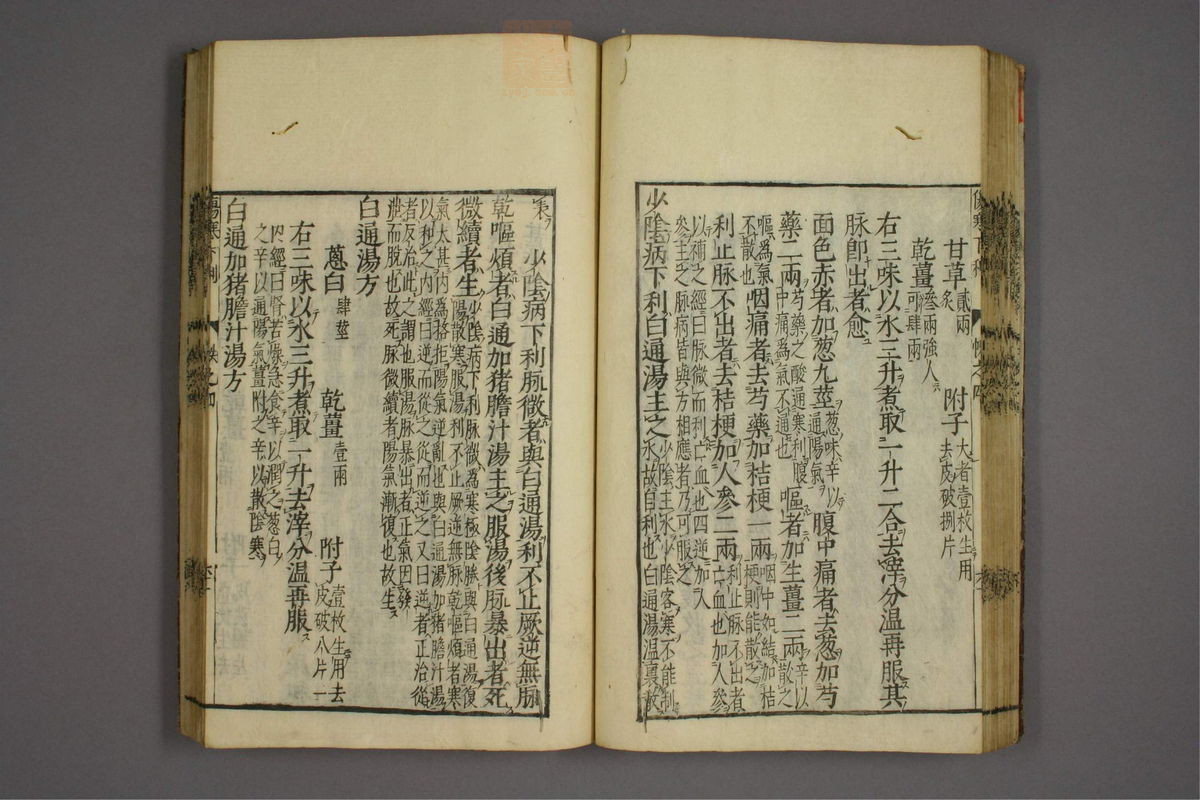 甘草貳兩炙　附子大者壹枚生用去皮破捌片
乾薑叁兩強人可肆兩
右三味以水三升煮取一升二合去滓分溫再服其
脉卽出者愈
面色赤者加葱九莖葱味辛以通陽氣腹中痛者去葱加芍
藥二兩芍藥之酸通寒利腹中痛爲氣不通也嘔者加生薑二兩辛以散之
嘔爲氣不散也咽痛者去芍藥加桔梗一兩咽中如結加桔梗則能散之
利止脉不出者去桔梗加人參二兩利止脉不出者亡血也加人參
以補之經曰脉微而利亡血也四逆加人
參主之脉病皆與方相應者乃可服之
少陰病下利白通湯主之少陰主水少陰客寒不能制水故自利也白通湯温裏散
寒　少陰病下利脉微者與白通湯利不止厥逆無脉
乾嘔煩者白通加猪膽汁湯主之服湯後脉暴出者死
微續者生少陰病下利脉微爲寒極陰勝與白通湯復陽散寒服湯利不止厥逆無脉乾嘔煩者寒
氣太甚内爲格拒陽氣逆亂也與白通湯加猪膽汁湯
以和之内經曰逆而從之從而逆之又曰逆者正治從
者反治此之謂也服湯脉暴出者正氣因發
泄而脱也故死脉微續者陽氣漸復也故生
白通湯方
蔥白肆莖　乾薑壹兩　附子壹枚生用去皮破八片
右三味以水三升煮取一升去滓分溫再服
内經曰腎苦燥急食辛以潤之葱白
之辛以通陽氣薑附之辛以散陰寒
白通加猪膽汁湯方
傷寒下利　帙之四